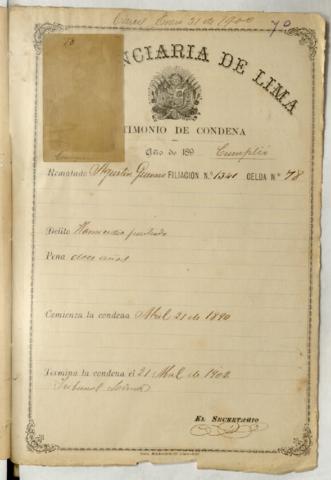 Enero 31 de 1900 70
NCIARIA DE LIMA
TIMONIO DE CONDENA
Año de 189 Cumplió
Rematado Agustin FILIACIÓN N.° 1341 CELDA N.° 78
Delito Homicidio
Pena doce años
Comienza la condena Abl 21 de 1890
Termina la condena el 21 Abl de 1902
Tribunal
EL SECRETARIO